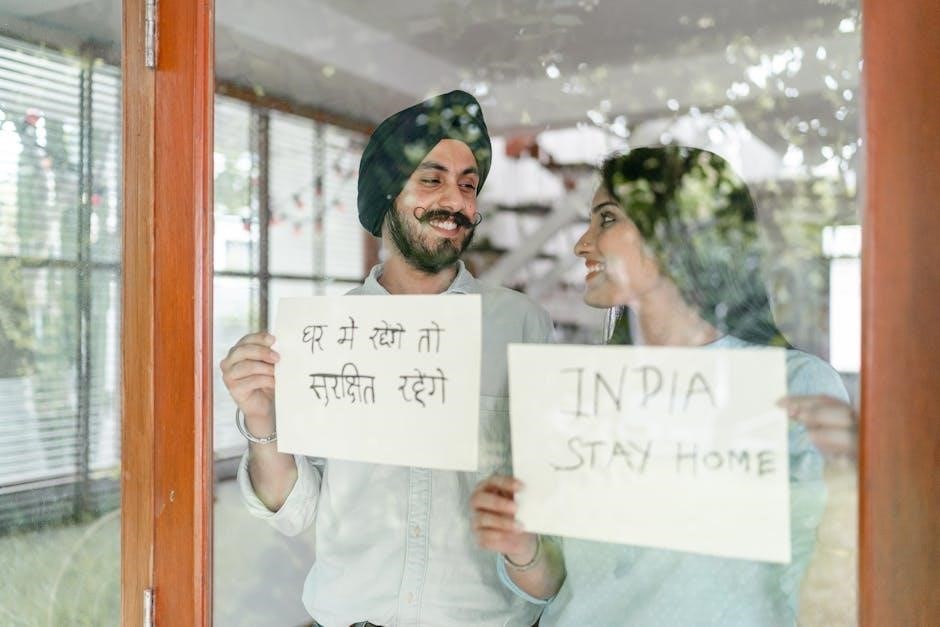 घर में रहेंगे तो
सुरक्षित रहेंगे
INDIA
STAY HOME